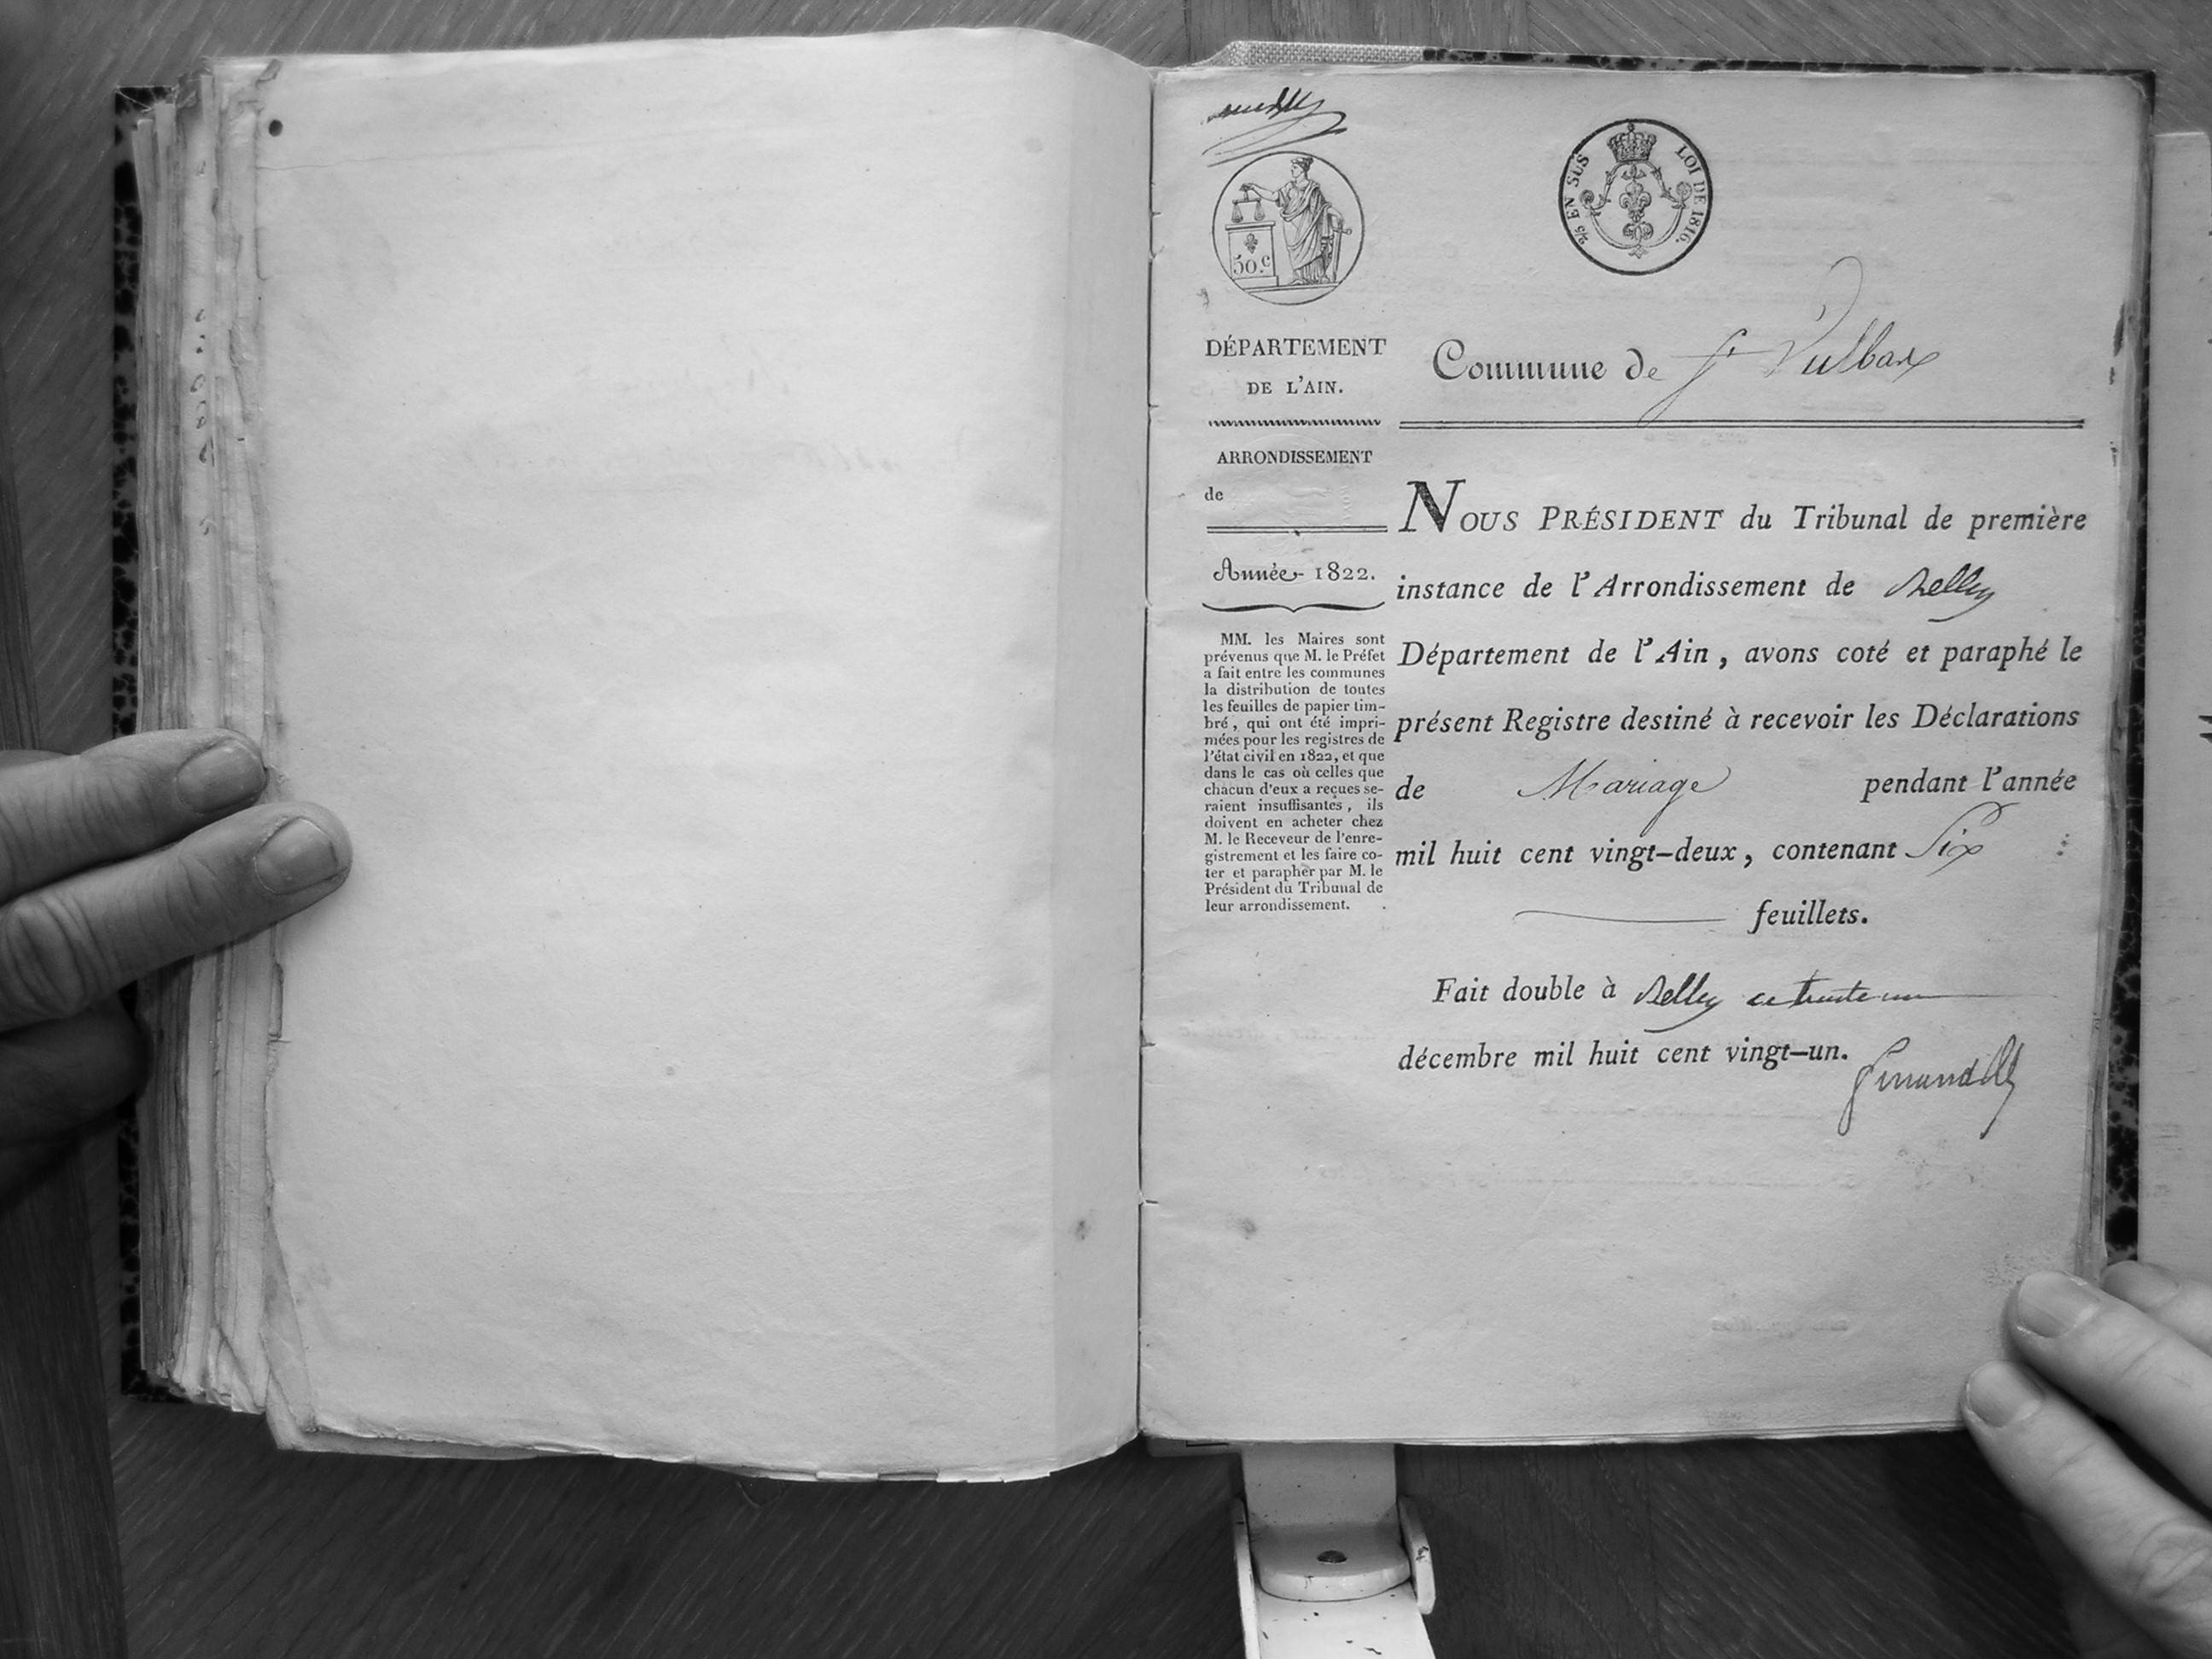 2/5 EN SUS LOI DE 1816.
50.c
DÉPARTEMENT
DE L'AIN.
Commune de St Vulbas
ARRONDISSEMENT
de
Année 1822.
MM. les Maires sont
prévenus que M. le Préfet
a fait entre les communes
la distribution de toutes
les feuilles de papier tim-
bré, qui ont été impri-
mées pour les registres de
l'état civil en 1822, et que
dans le cas où celles que
chacun d'eux a reçues se-
raient insuffisantes, ils
doivent en acheter chez
M. le Receveur de l'enre-
gistrement et les faire co-
ter et parapher par M. le
Président du Tribunal de
leur arrondissement.
NOUS PRÉSIDENT du Tribunal de première
instance de l'Arrondissement de Belley
Département de l'Ain, avons coté et paraphé le
présent Registre destiné à recevoir les Déclarations
de Mariage pendant l'année
mil huit cent vingt-deux, contenant Six
feuillets.
Fait double à Belley ce trente un
décembre mil huit cent vingt-un.